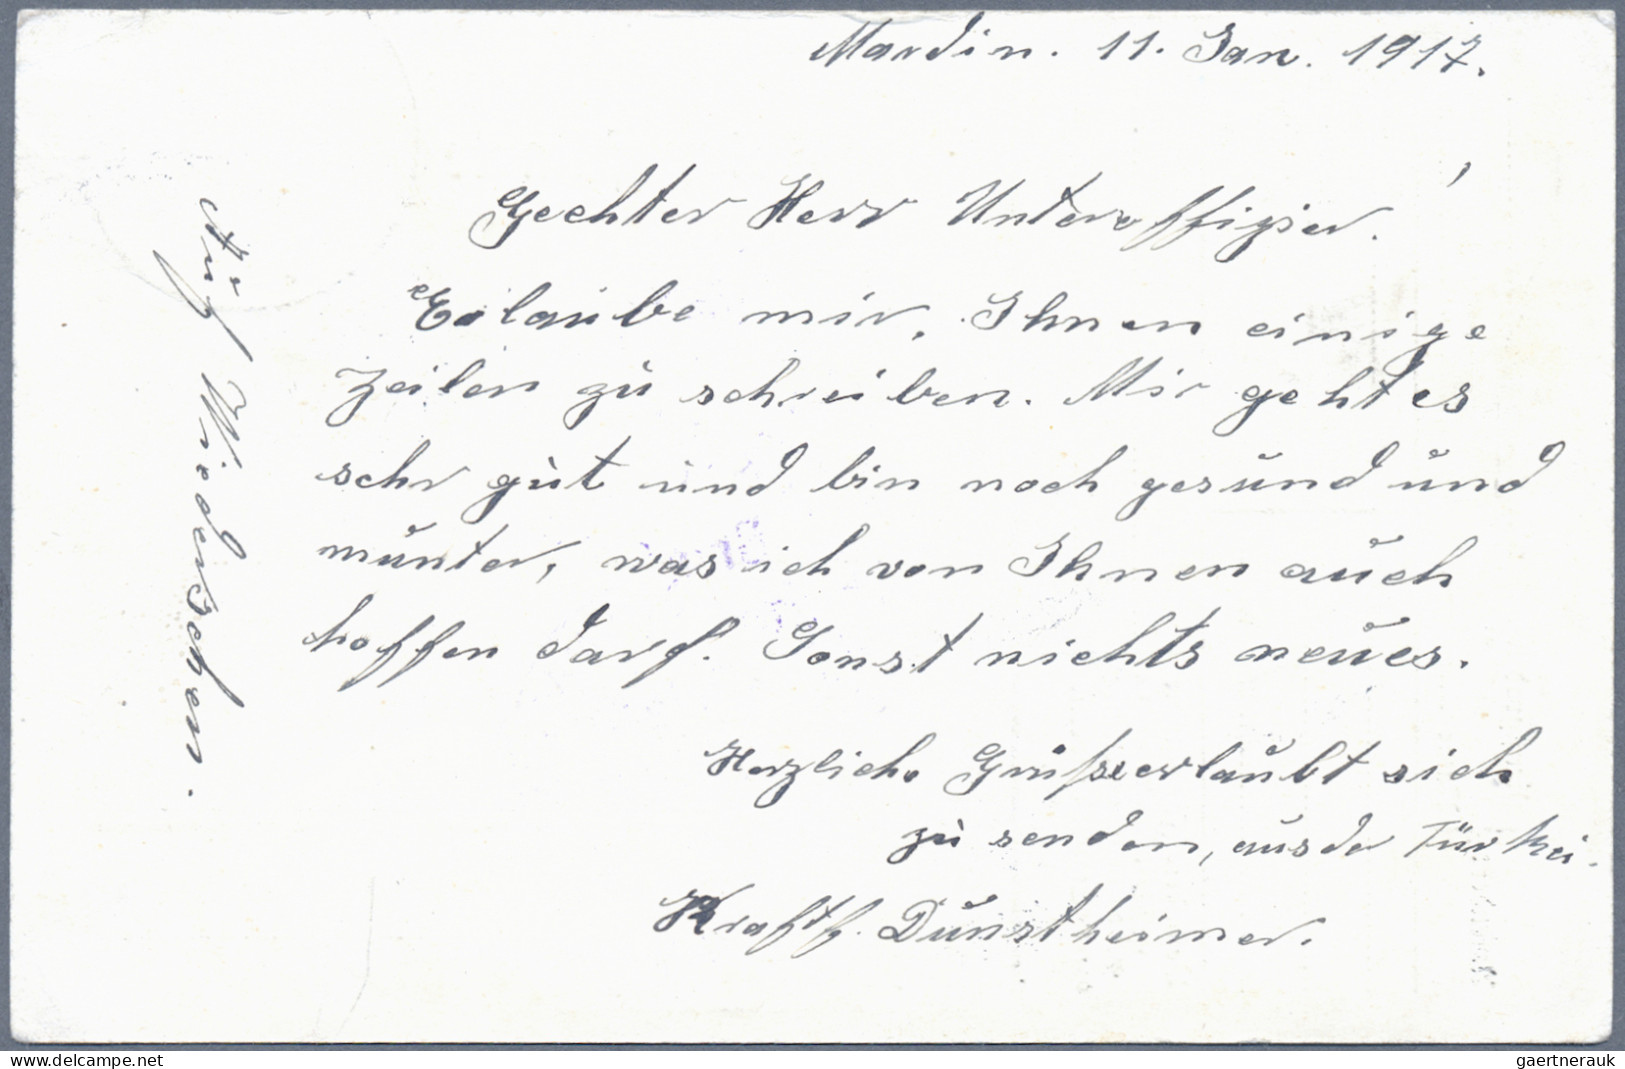 Mardin. 11. Jan. 1917.
Geehter Herr Unteroffizier.
Erlaube mir, Ihnen einige
Zeilen zu schreiben. Mir geht es
sehr gut und bin noch gesund und
munter, was ich von Ihnen auch
hoffen darf. Sonst nichts neues.
Herzliche Grüsse erlaubt sich
zu senden, aus der Türkei.
Kraftf. Dunstheimer.
Auf Wiedersehen.
www.delcampe.net
gaertnerauk